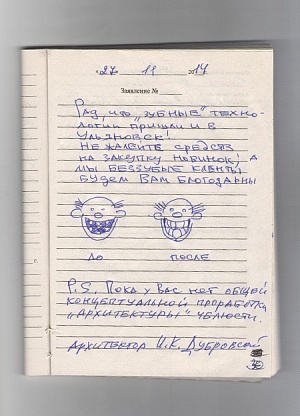 "27" 11 2014
Заявление № 
Рад, что "зубные" техно-
логии пришли и в
Ульяновск!
Не жалейте средств
на закупку новинок, а
мы беззубые клиенты
будем Вам благодарны
до после
P.S. Пока у Вас нет общей
концептуальной проработки
"архитектуры" челюсти.
Архитектор И.К. Дубровской